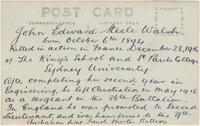 POST CARD
CORRESPONDENCE
John Edward Steele Walsh
born October 6th 1892
Killed in action in France December 23, 1916
Of The King's School and St Paul's College
Sydney University
After completing his second year in
Engineering, he left Australia in May 1916
as a sergeant in the 36th Battalion.
In England he was promoted to Second
Lieutenant, and was transferred to the 9th
Australian